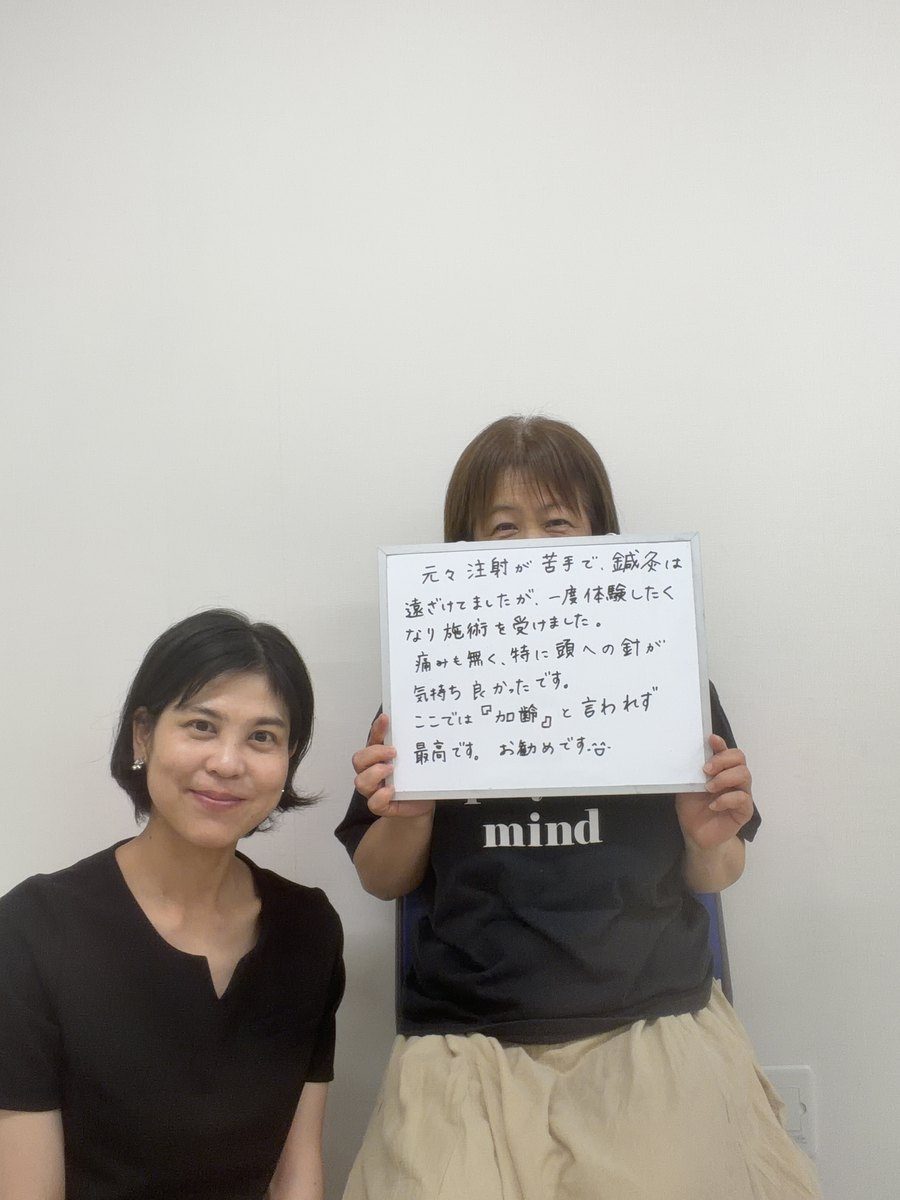 元々 注射が 苦手で、鍼灸は
遠ざけてましたが、一度体験したく
なり施術を受けました。
痛みも無く、特に頭への針が
気持ち良かったです。
ここでは『加齢』と言われず
最高です。 お勧めです
mind